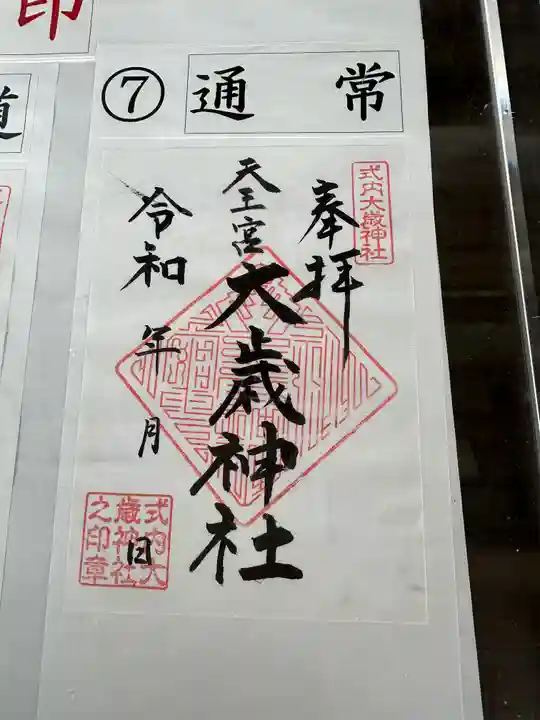 印
道
⑦
通常
式内大歳神社
奉拝
天王宮
大歳神社
令和 年 月 日
式内大
歳神社
之印章